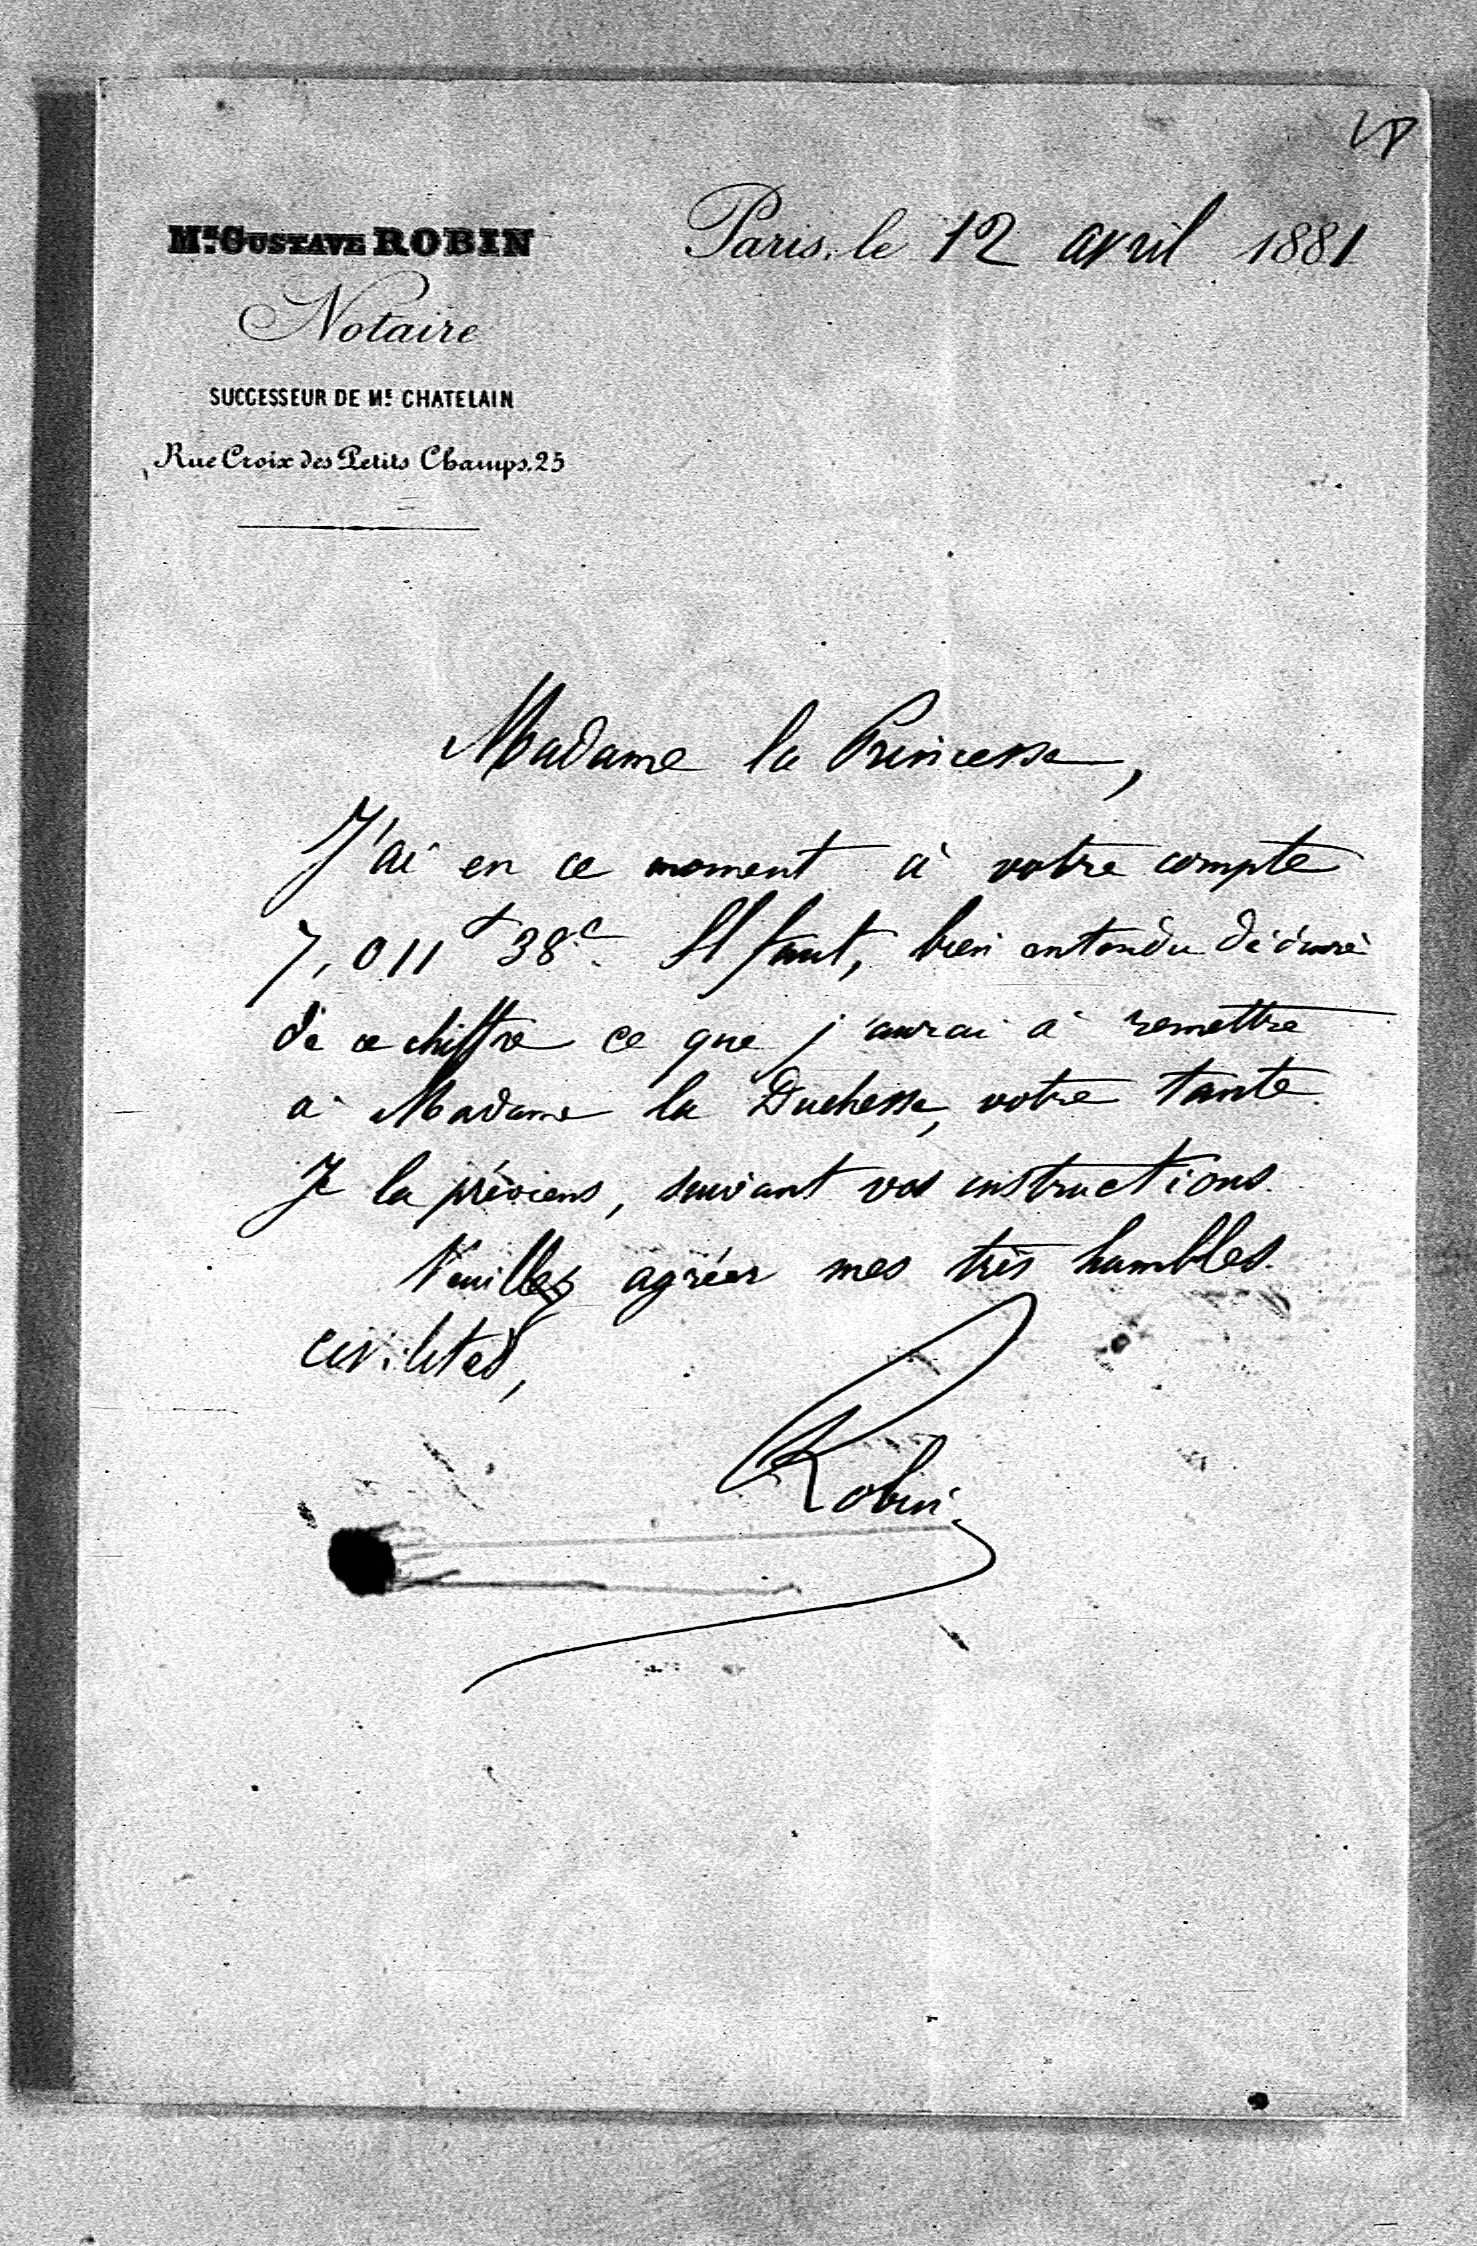 Mᵉ. GUSTAVE ROBIN
Notaire
SUCCESSEUR DE Mᵉ CHATELAIN
Rue Croix des Petits Champs, 25
Paris, le 12 avril 1881
Madame la Princesse,
J'ai en ce moment à votre compte
7,011 f 38 c. Il faut, bien entendu déduire
de ce chiffre ce que j'aurai à remettre
à Madame la Duchesse, votre tante.
Je la préviens, suivant vos instructions.
Veuillez agréer mes très humbles
civilités,
Robin